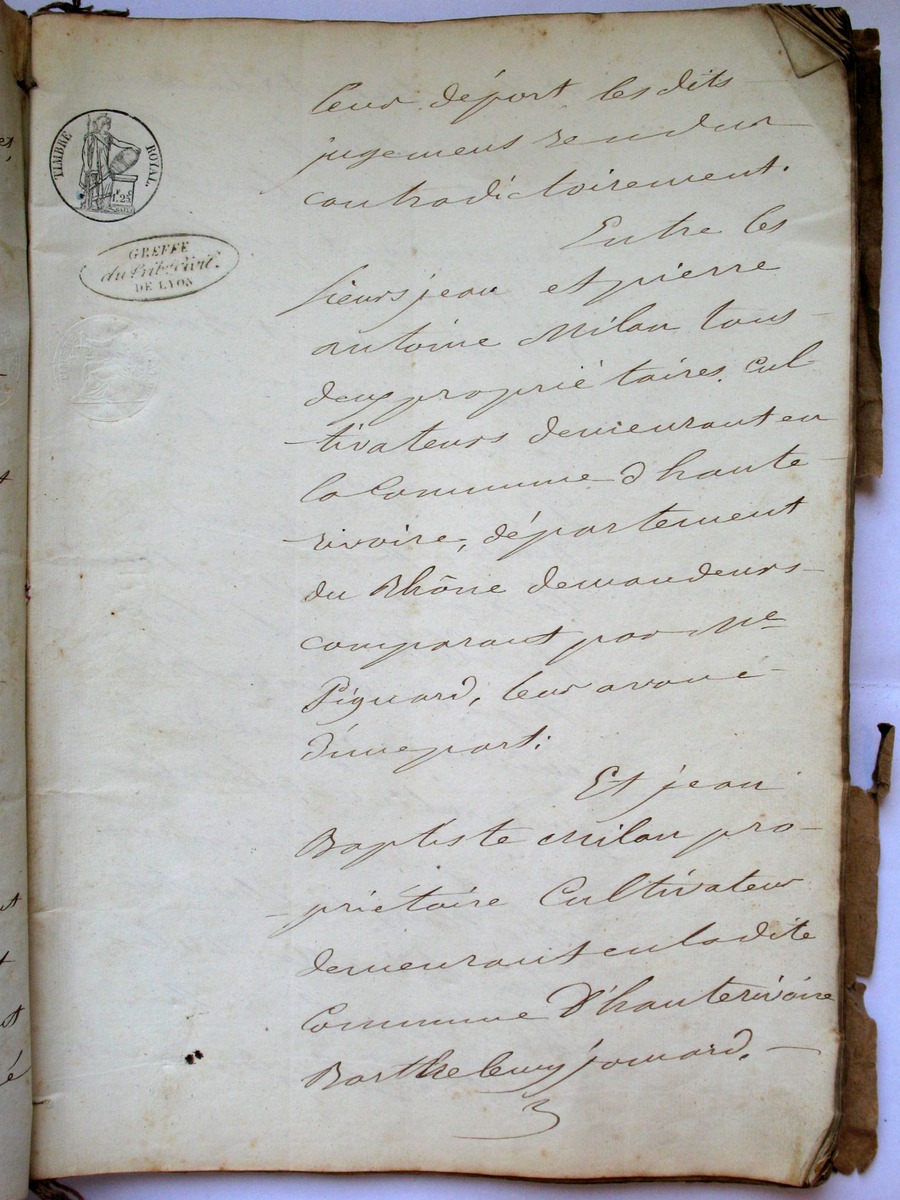 TIMBRE ROYAL
1F. 25C
GREFFE
du Trib. Civil
DE LYON
leur départ les dits
jugemens rendus
contradictoirement.
Entre les
sieurs jean et pierre
antoine Milan tous
deux propriétaires cul-
tivateurs demeurant en
la Commune d'haute
rivoire, département
du Rhône demandeurs
comparant par Me
Piguard, leur avoué
d'une part;
Et jean
Baptiste Milan pro-
priétaire Cultivateur
demeurant en la dite
Commune d'hauterivoire
Barthelemy jomard,